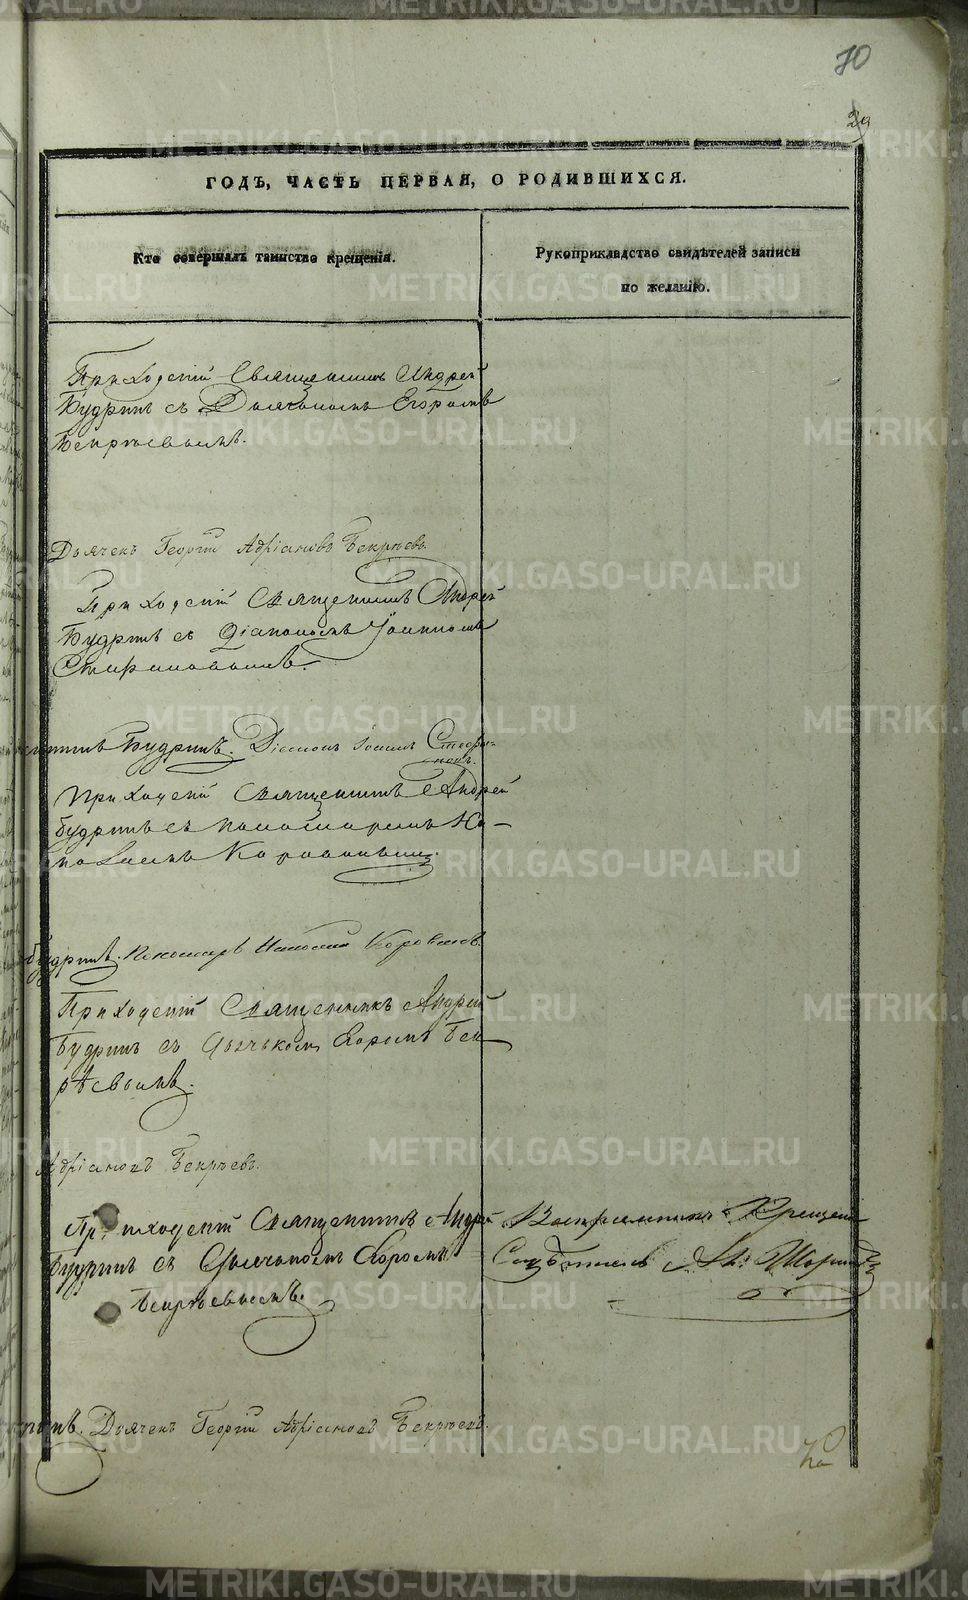 70
29
ГОДЪ, ЧАСТЬ ПЕРВАЯ, О РОДИВШИХСЯ.
Кто совершалъ таинство крещенія.
Рукоприкладство свидѣтелей записи
по желанію.
Приходскій Священникъ Андрей
Будринъ съ Дьячкомъ Егоромъ
Бекрѣевымъ.
Дьячекъ Георгій Адріановъ Бекрѣевъ.
Приходскій Священникъ Андрей
Будринъ съ Діакономъ Іоанномъ
Стефановымъ.
Будринъ. Діаконъ Іоаннъ Стефа-
новъ.
Приходскій Священникъ Андрей
Будринъ съ пономаремъ
Коровинымъ.
Будринъ. Пономарь Коровинъ.
Приходскій Священникъ Андрей
Будринъ съ Дьячькомъ Егоромъ Бек
рѣевымъ.
Адріановъ Бекрѣевъ.
Приходскій Священникъ Андрей
Будринъ съ Дьячкомъ Егоромъ
Бекрѣевымъ.
Крещенія
Дьячекъ Георгій Адріановъ Бекрѣевъ.
METRIKI.GASO-URAL.RU